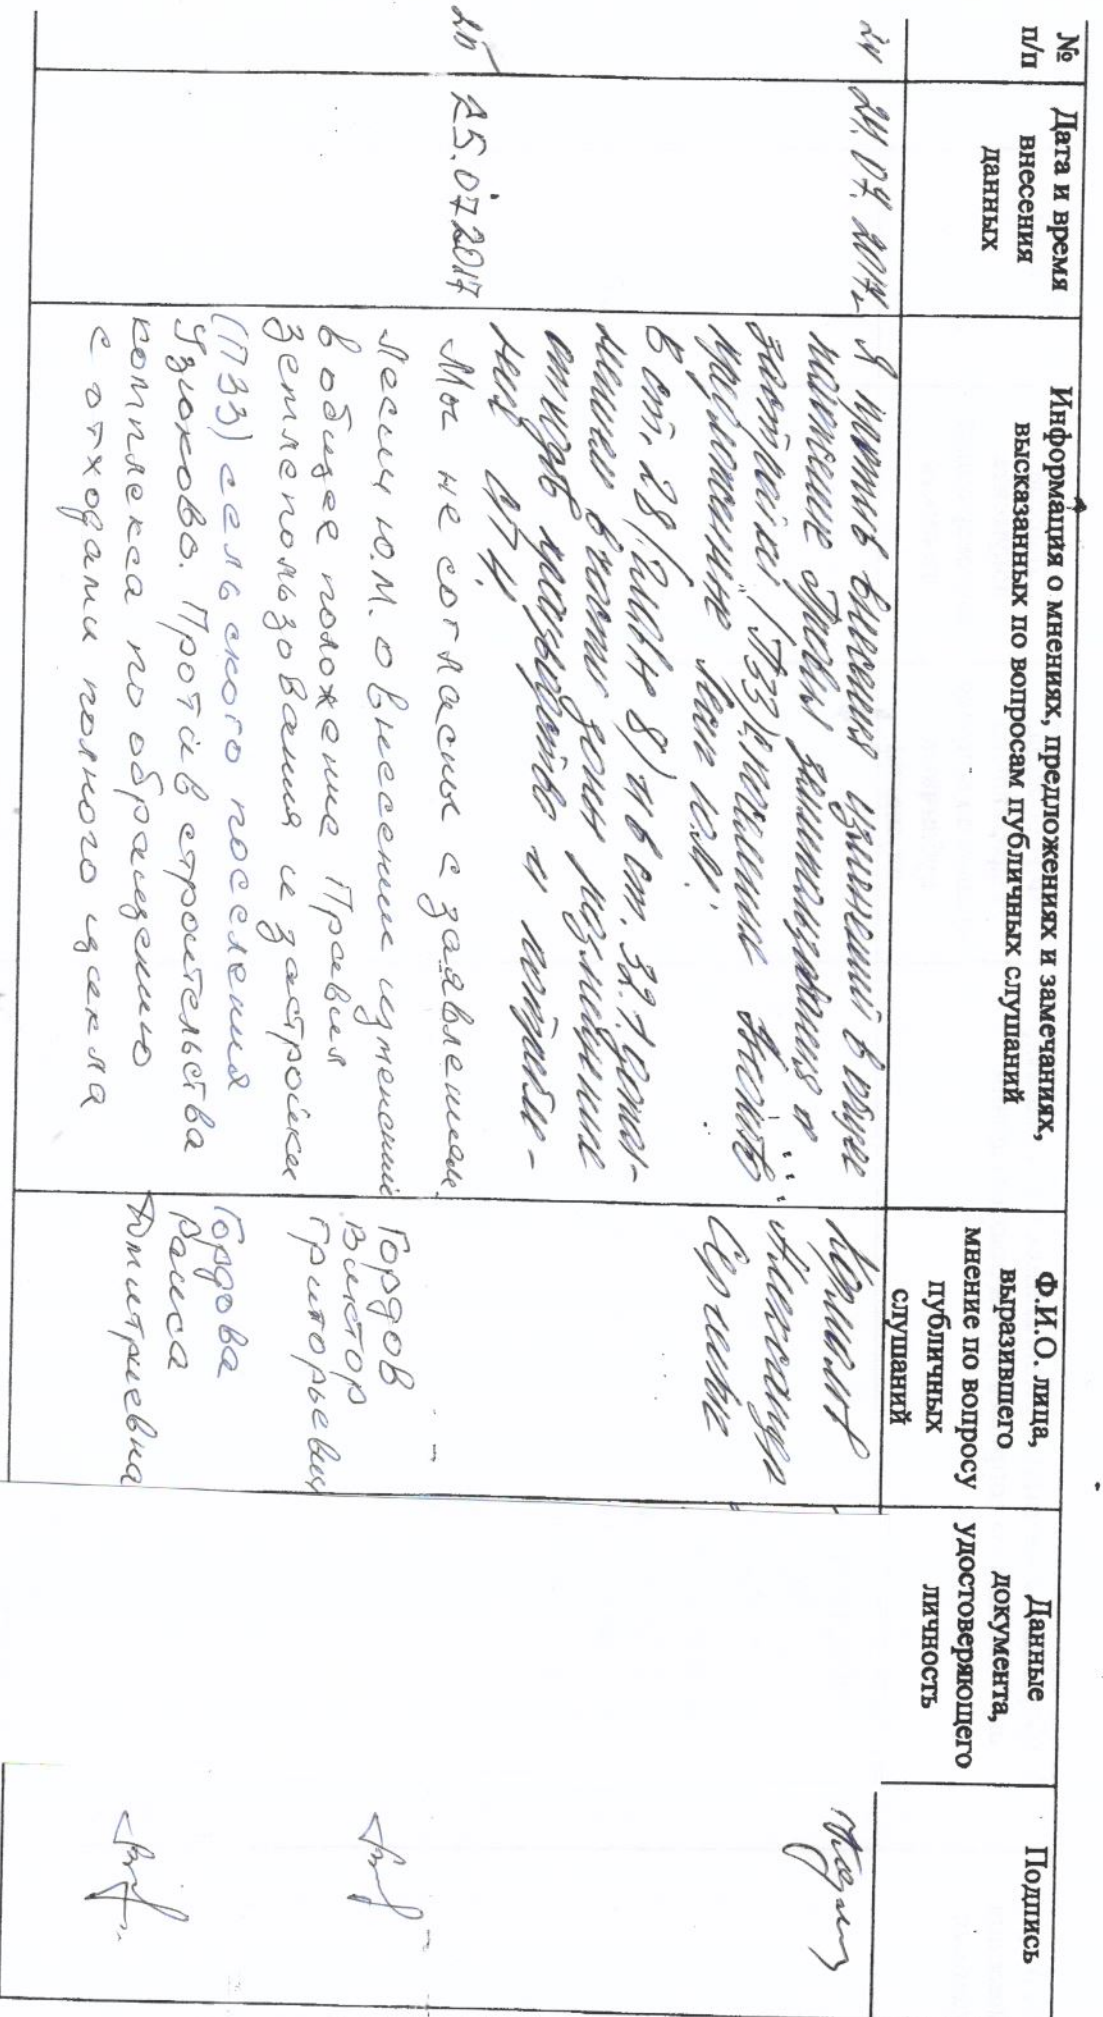 № п/п
Дата и время внесения данных
Информация о мнениях, предложениях и замечаниях, высказанных по вопросам публичных слушаний
Ф.И.О. лица, выразившего мнение по вопросу публичных слушаний
Данные документа, удостоверяющего личность
Подпись
24
24.07.2017г
Я против внесения изменений в общее
положение Правил землепользования и
застройки (ПЗЗ) поселения
предложенные Лесс Ю.М.
В ст. 28 (Глава 8) и в ст. 32.1 допол-
нению в части зоны размещения
отходов производства и потребле-
ния СП4.
Александр
Сергеевич
25
25.07.2017
Мы не согласны с заявлением
Лесси Ю.М. о внесении изменений
в общее положение Правил
землепользования и застройки
(ПЗЗ) сельского поселения
Узюково. Против строительства
комплекса по обращению
с отходами полного цикла
Гордов
Виктор
Григорьевич
Гордова
Раиса
Дмитриевна